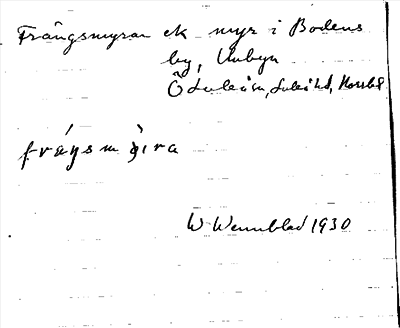 Frångsmyran ek myr i Bodens
by, Unbyn
Ö Luleå sn, Luleå hd, Norrb l
fráŋsm ỳ ra
W Wennblad 1930